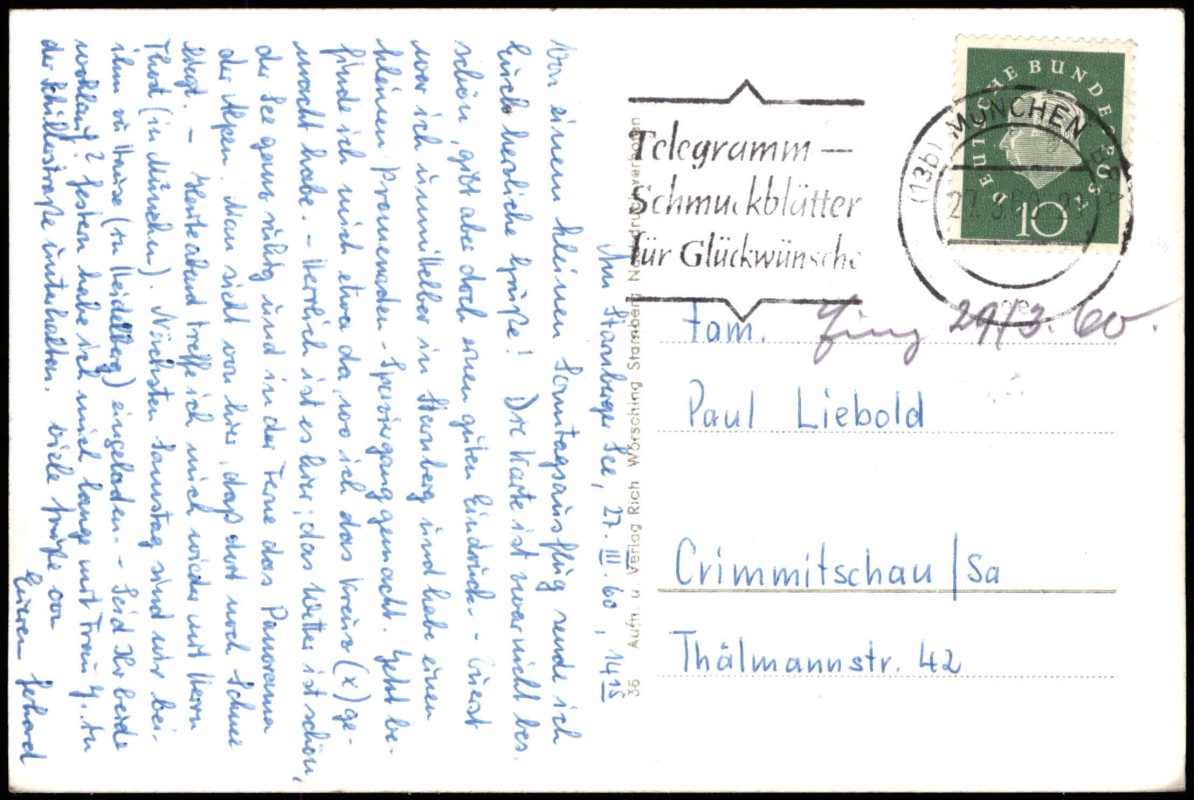 Am Starnberger See, 27. III. 60, 14 15
Von einem kleinen Sonntagsausflug sende ich
Euch herzliche Grüße! Die Karte ist zwar nicht bes.
schön, gibt aber doch einen guten Eindruck. - Zuerst
war ich unmittelbar in Starnberg und habe einen
kleinen Promenaden-Spaziergang gemacht. Jetzt be-
finde ich mich etwa da, wo ich das Kreuz (x) ge-
macht habe. - Herrlich ist es hier; das Wetter ist schön,
der See ganz ruhig und in der Ferne das Panorama
der Alpen. Man sieht von hier, daß dort noch Schnee
liegt. - Heute abend treffe ich mich wieder mit Herrn
Thost (in München). Nächsten Samstag sind wir bei
ihm zu Hause (in Heidelberg) eingeladen. - Seid Ihr beide
wohlauf? Gestern habe ich mich lange mit Frau J. in
der Schillerstraße unterhalten. Viele Grüße von
Eurem Gerhard
36 Aufn. u. Verlag Rich Wörsching Starnberg Nachdruck verboten
Telegramm —
Schmuckblätter
für Glückwünsche
DEUTSCHE BUNDESPOST
10
(13b) MÜNCHEN
29/3. 60.
Fam.
Paul Liebold
Crimmitschau/Sa
Thälmannstr. 42